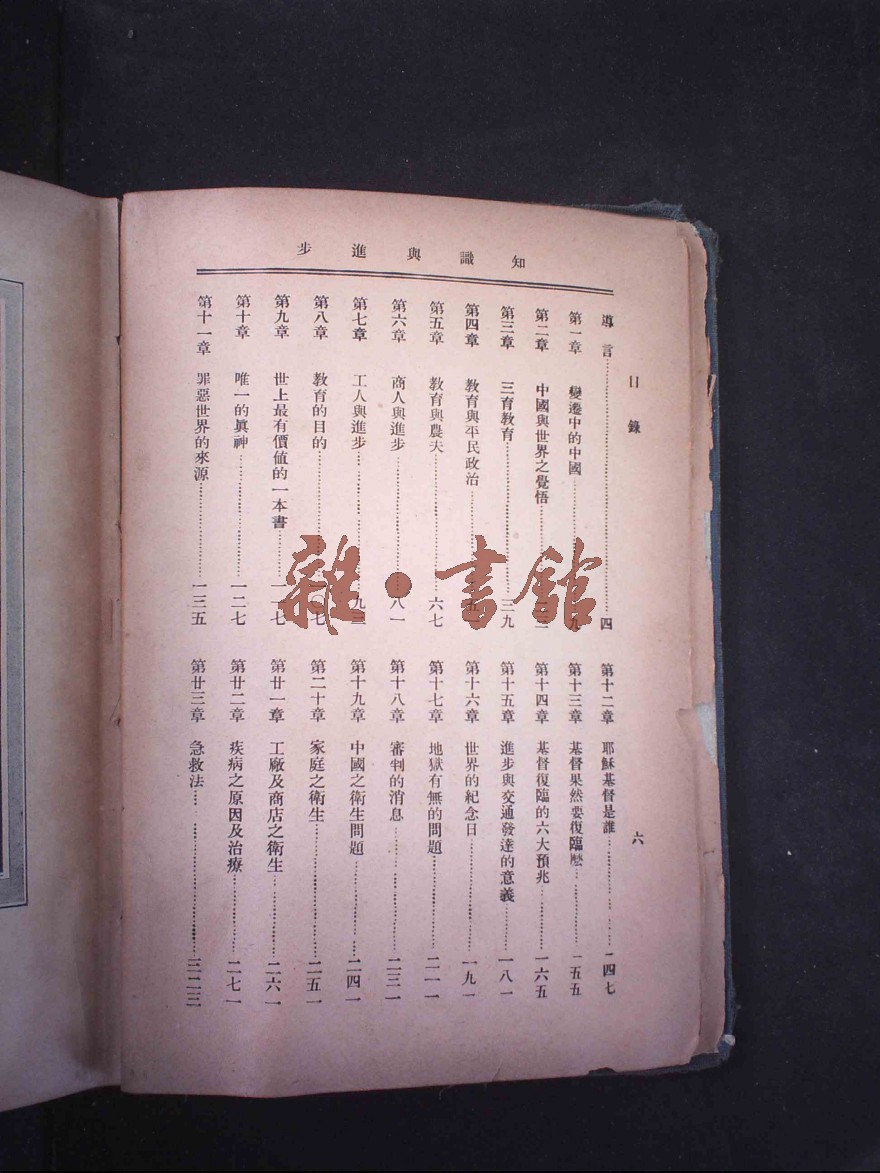 知識與進步
目錄
六
導言……四
第一章 變遷中的中國……九
第二章 中國與世界之覺悟……
第三章 三育教育……三九
第四章 教育與平民政治……
第五章 教育與農夫……六七
第六章 商人與進步……八一
第七章 工人與進步……九三
第八章 教育的目的……
第九章 世上最有價值的一本書……一一七
第十章 唯一的眞神……一二七
第十一章 罪惡世界的來源……一三五
第十二章 耶穌基督是誰……一四七
第十三章 基督果然要復臨麽……一五五
第十四章 基督復臨的六大預兆……一六五
第十五章 進步與交通發達的意義……一八一
第十六章 世界的紀念日……一九一
第十七章 地獄有無的問題……二一一
第十八章 審判的消息……二三一
第十九章 中國之衛生問題……二四一
第二十章 家庭之衛生……二五一
第廿一章 工厰及商店之衛生……二六一
第廿二章 疾病之原因及治療……二七一
第廿三章 急救法……三二三
雜·書館